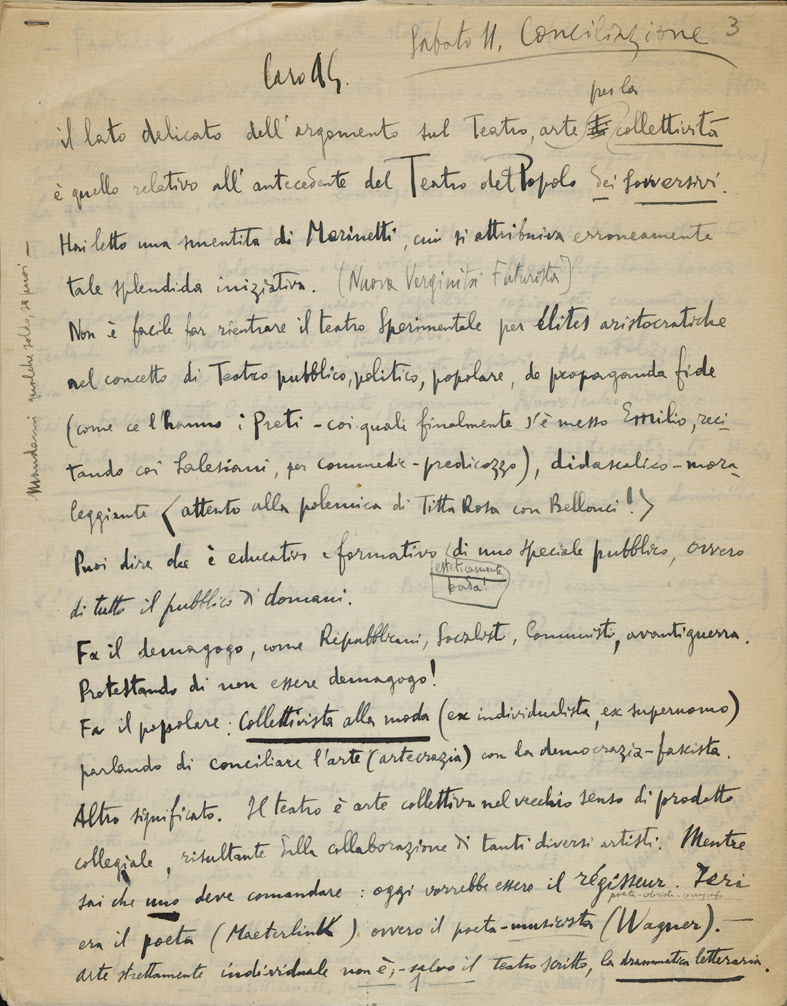 Sabato 11. Conciliazione 3
Caro AG.
per la
il lato delicato dell'argomento sul Teatro, arte collettività
è quello relativo all'antecedente del Teatro del Popolo dei Sovversivi.
Hai letto una smentita di Marinetti, cui si attribuiva erroneamente
tale splendida iniziativa. (Nuova Verginità Futurista)
Non è facile far rientrare il teatro Sperimentale per élites aristocratiche
nel concetto di Teatro pubblico, politico, popolare, de propaganda fide
(come ce l'hanno i Preti - coi quali finalmente s'è messo Emilio, reci-
tando coi Salesiani, per commedie-predicozzo), didascalico-mora-
leggiante <attento alla polemica di Titta Rosa con Bellonci!>
Puoi dire che è educativo e formativo (di uno speciale pubblico, ovvero
esteticamente
bada!
di tutto il pubblico di domani.
Fa il demagogo, come Repubblicani, Socialisti, Comunisti, avantiguerra.
Protestando di non essere demagogo!
Fa il popolare: Collettivista alla moda (ex individualista, ex superuomo)
parlando di conciliare l'arte (artecrazia) con la democrazia-fascista.
Altro significato. Il teatro è arte collettiva nel vecchio senso di prodotto
collegiale, risultante dalla collaborazione di tanti diversi artisti. Mentre
sai che uno deve comandare: oggi vorrebbe essere il régisseur. Ieri
era il poeta (Maeterlink) ovvero il poeta-musicista (Wagner). -
arte strettamente individuale non è, - salvo il teatro scritto, la drammatica letteraria.
Mandami qualche soldo, se puoi -